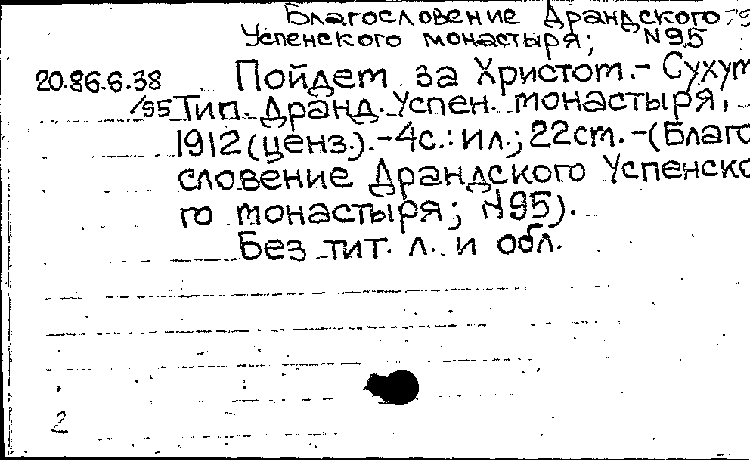 Благословение Драндского
Успенского монастыря; N95
20.86.6.38 Пойдет за Христом.- Сухум
/95 Тип. Дранд. Успен. монастыря,
1912 (ценз.).-4с.: ил.; 22cm. -(Благо
словение Драндского Успенско
го монастыря; N95).
Без тит. л. и обл.
2